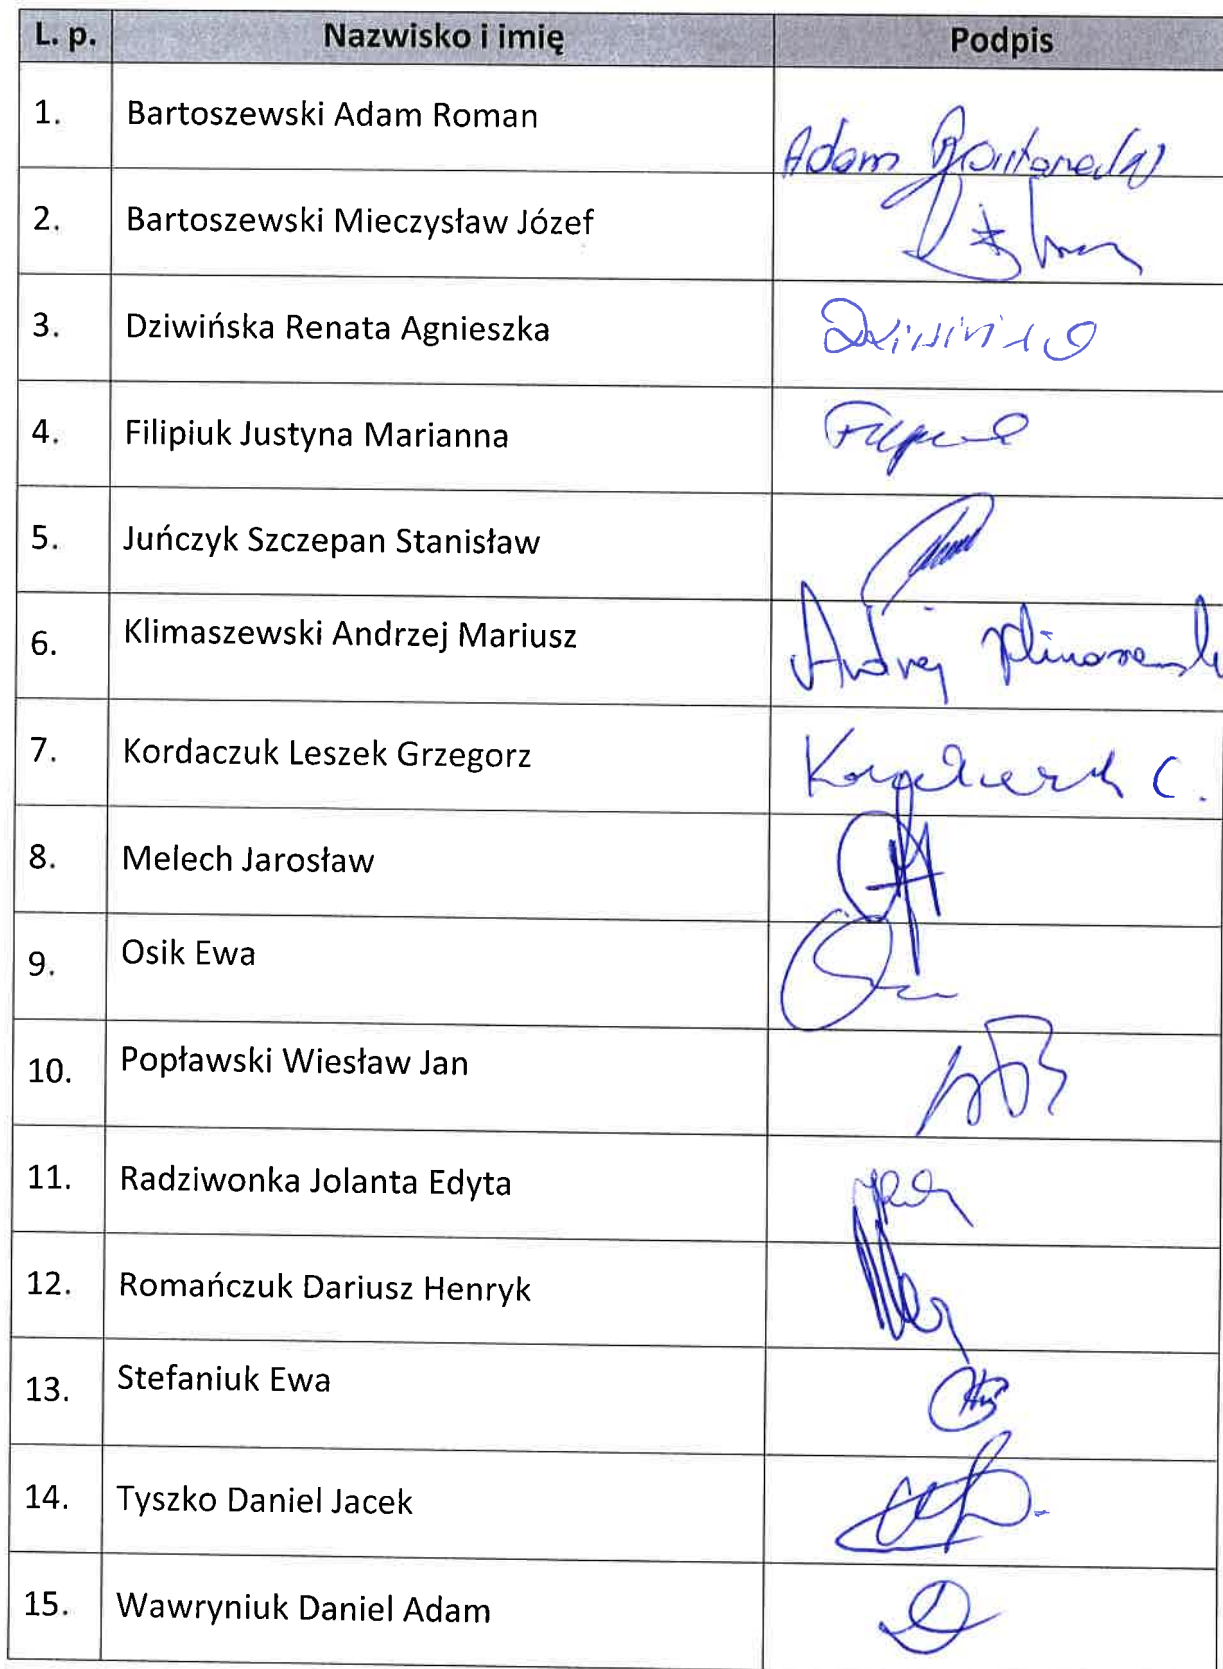 L. p. Nazwisko i imię Podpis
1. Bartoszewski Adam Roman Adam
2. Bartoszewski Mieczysław Józef
3. Dziwińska Renata Agnieszka
4. Filipiuk Justyna Marianna
5. Juńczyk Szczepan Stanisław
6. Klimaszewski Andrzej Mariusz
7. Kordaczuk Leszek Grzegorz
8. Melech Jarosław
9. Osik Ewa
10. Popławski Wiesław Jan
11. Radziwonka Jolanta Edyta
12. Romańczuk Dariusz Henryk
13. Stefaniuk Ewa
14. Tyszko Daniel Jacek
15. Wawryniuk Daniel Adam